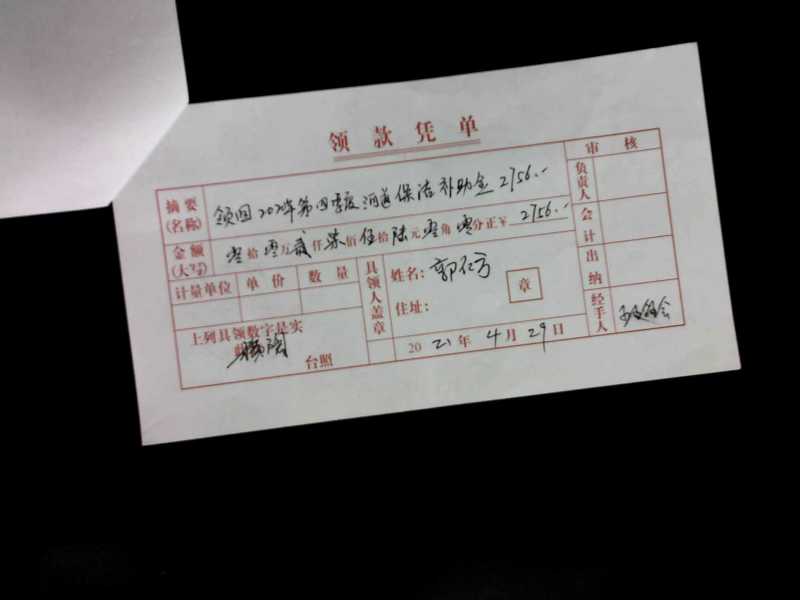 领款凭单
审核
摘要(名称) 领回2020年第四季度河道保洁补助金2756.--
负责人
金额(大写) 零拾零万贰仟柒佰伍拾陆元零角零分正¥ 2756.--
会计
计量单位 单价 数量
具领人盖章
姓名:郭仁方
章
住址:
出纳
上列具领数字是实
台照
2021年4月29日
经手人